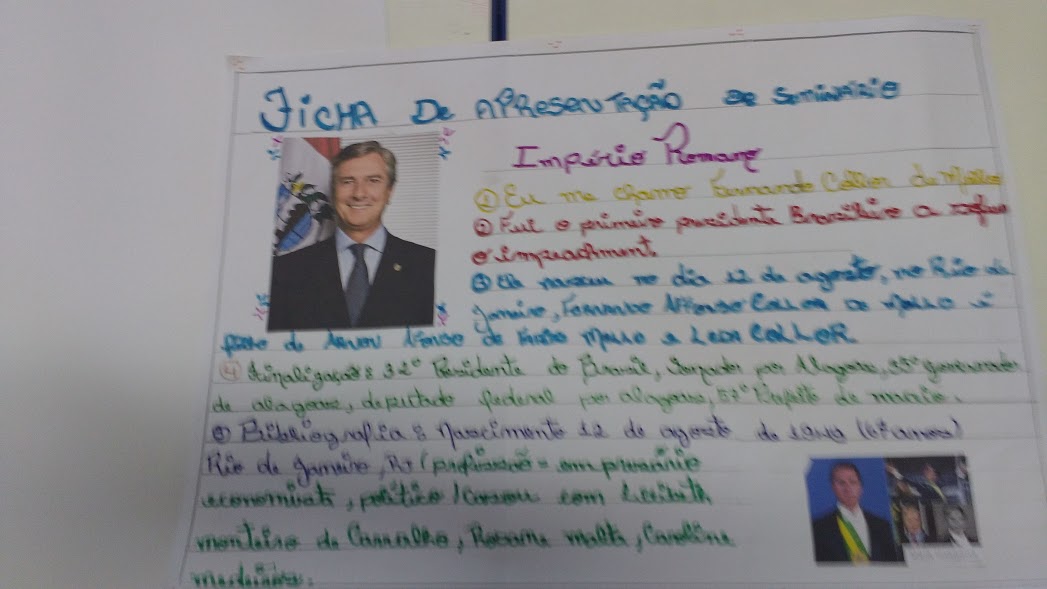 FICHA DE APRESENTAÇÃO DE SEMINÁRIO
Império Romano
① Eu me chamo Fernando Collor de Mello
② Fui o primeiro presidente Brasileiro a sofrer
o impeachment.
③ Ele nasceu no dia 12 de agosto, no Rio de
Janeiro, Fernando Affonso COLLOR DE MELLO é
filho de ARNON Afonso de Farias MELLO e LEDA COLLOR.
④ 32º Presidente do Brasil, Senador por Alagoas,
de alagoas, deputado federal por alagoas, de
Bibliografia: Nascimento 12 de agosto de 1949
Rio de Janeiro, RJ / profissão = empresário
economista, político / Casou com
monteiro de Carvalho, Rosane malta, Caroline
medeiros.